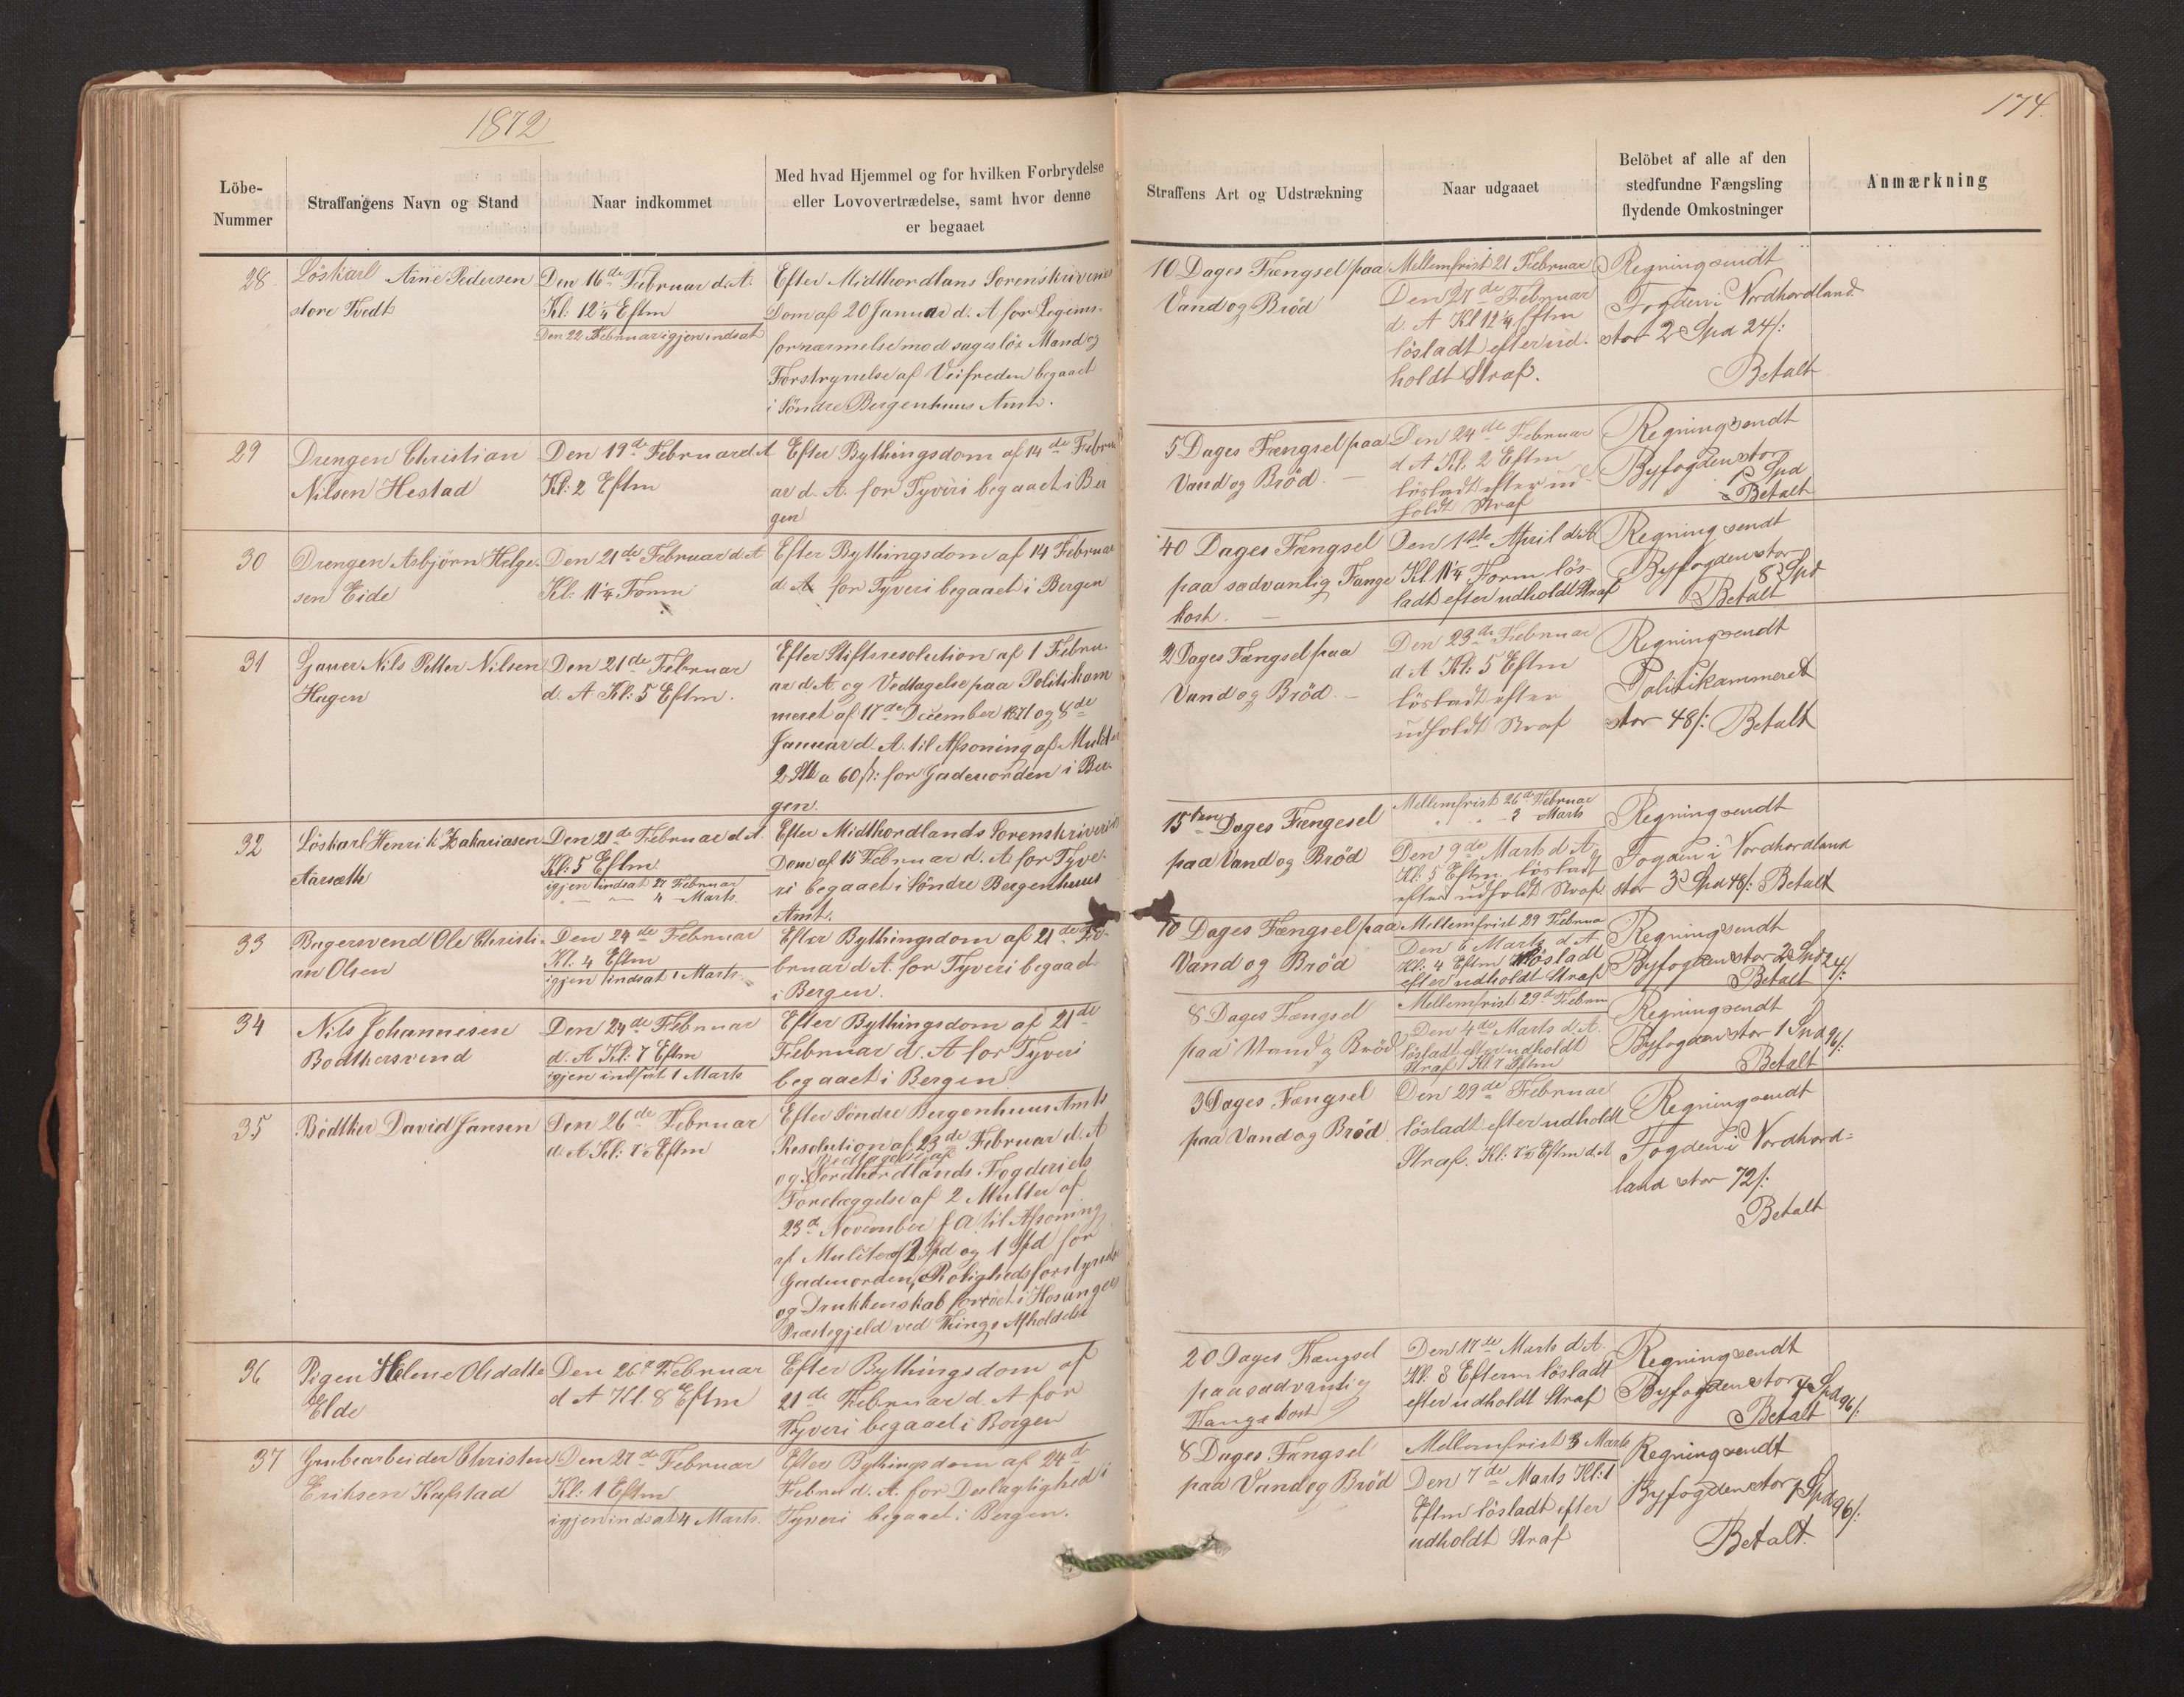 1872
174.
Löbe-
Nummer
Straffangens Navn og Stand
Naar indkommet
Med hvad Hjemmel og for hvilken Forbrydelse
eller Lovovertrædelse, samt hvor denne
er begaaet
Straffens Art og Udstrækning
Naar udgaaet
Belöbet af alle af den
stedfundne Fængsling
flydende Omkostninger
Anmærkning
28
Löskarl Arne Pedersen
store Tvedt
Den 16de Februar d. A.
Kl: 12¼ Eftm
Den 22 Februar igjen indsat
Efter Midthordlans Sorenskriveries
Dom af 20 Januar d. A for Legems-
fornærmelse mod sageslös Mand og
Forstyrrelse af Veifreden begaaet
i Söndre Bergenhuus Amt.
10 Dages Fængsel paa
Vand og Bröd
Mellemfrist 21 Februar
Den 27de Februar
d. A Kl 12¼ Eftm
lösladt efter ud-
holdt Straf.
Regning sendt
Fogden i Nordhordland
stor 2 Spd 24 s:
Betalt
29
Drengen Christian
Nilsen Hestad
Den 19de Februar d. A
Kl: 2 Eftm
Efter Bythingsdom af 14de Febru
ar d. A. for Tyveri begaaet i Ber
gen
5 Dages Fængsel paa
Vand og Bröd. —
Den 24de Februar
d A Kl. 2 Eftm
lösladt efter ud-
holdt Straf
Regning sendt
Byfogden stor
1 Spd
Betalt
30
Drengen Asbjörn Helge-
sen Eide
Den 21de Februar d. A
Kl: 11¼ Form
Efter Bythingsdom af 14 Februar
d. A. for Tyveri begaaet i Bergen
40 Dages Fængsel
paa sædvanlig Fange
kost. —
Den 1ste April d. A
Kl 11¼ Form lös-
ladt efter udholdt Straf
Regning sendt
Byfogden stor
8 Spd
Betalt
31
Nils Petter Nilsen
Hagen
Den 21de Februar
d. A Kl: 5 Eftm.
Efter Stiftsresolution af 1 Febru-
ar d. A. og Vedtagelse paa Politikam
meret af 17de December 1871 og 8de
Januar d. A. til Afsoning af Mulct
2 Stk a 60 s: for Gadeuorden i Ber-
gen.
2 Dages Fængsel paa
Vand og Bröd. —
Den 23de Februar
d. A Kl: 5 Eftm
lösladt efter
udholdt Straf
Regning sendt
Politikammeret
stor 48 s: Betalt
32
Löskarl Henrik Zakariasen
Aarsæth
Den 21de Februar d. A.
Kl: 5 Eftm
igjen indsat 27 Februar
— — 4 Marts.
Efter Midthordlands Sorenskriveries
Dom af 15 Februar d. A for Tyve-
ri begaaet i Söndre Bergenhuus
Amt.
15ten Dages Fængesel
paa Vand og Bröd
Mellemfrist 26de Februar
" " 3 Marts
Den 9de Marts d. A
Kl. 5 Eftm. lösladt
efter udholdt Straf
Regning sendt
Fogden i Nordhordland
stor 3 Spd 48 s: Betalt
33
Bagersvend Ole Christi-
an Olsen
Den 24de Februar
Kl. 4 Eftm
igjen indsat 1 Marts.
Efter Bythingsdom af 21de Fe-
bruar d. A. for Tyveri begaaet
i Bergen.
10 Dages Fængsel paa
Vand og Bröd
Mellemfrist 29 Februa
Den 6 Marts d. A
Kl: 4 Eftm lösladt
efter udholdt Straf
Regning sendt
Byfogden stor 2 Spd 24 s:
Betalt
34
Nils Johannesen
Bödtkersvend
Den 24de Februar
d. A Kl: 7 Eftm
igjen indsat 1 Marts
Efter Bythingsdom af 21de
Februar d. A for Tyveri
begaaet i Bergen
8 Dages Fængsel
paa Vand og Bröd
Mellemfrist 29de Febru
Den 4de Marts d. A.
lösladt efter udholdt
Straf Kl 7 Eftm
Regning sendt
Byfogden stor 1 Spd 96 s:
Betalt
35
Bödtker David Jansen
Den 26de Februar
d. A Kl: 7½ Eftm
Efter Söndre Bergenhuus Amts
Resolution af 23de Februar d. A
Vedtagelse af
og Nordhordlands Fogderiets
Forelæggelse af 2 Mulkter af
23de November f A til Afsoning
af Mulkter af 2 Spd og 1 Spd for
Gadeuorden, Rolighedsforstyrrelse
og Drukkenskab forövet i Hosanger
Præstegjeld ved Things Afholdelse
3 Dages Fængsel
paa Vand og Bröd
Den 29de Februar
lösladt efter udholdt
Straf. Kl: 7½ Eftm d. A
Regning sendt
Fogden i Nordhord=
land stor 72 s:
Betalt
36
Pigen Helene Olsdatte
Elde
Den 26de Februar
d A Kl. 8 Eftm
Efter Bythingsdom af
21de Februar d. A for
Tyveri begaaet i Bergen
20 Dages Fængsel
paa sædvanlig
Fangekost
Den 17de Marts d. A.
Kl. 8 Efterm lösladt
efter udholdt Straf
Regning sendt
Byfogden stor 4 Spd 96 s:
Betalt
37
Grubearbeider Christen
Eriksen Kafstad
Den 27de Februar
Kl: 1 Eftm
igjen indsat 4 Marts.
Efter Bythingsdom af 24de
Febru d. A. for Deelagtighed i
Tyveri begaaet i Bergen.
8 Dages Fængsel
paa Vand og Bröd
Mellemfrist 3 Marts
Den 7de Marts Kl: 1
Eftm lösladt efter
udholdt Straf
Regning sendt
Byfogden stor 1 Spd 96 s:
Betalt.